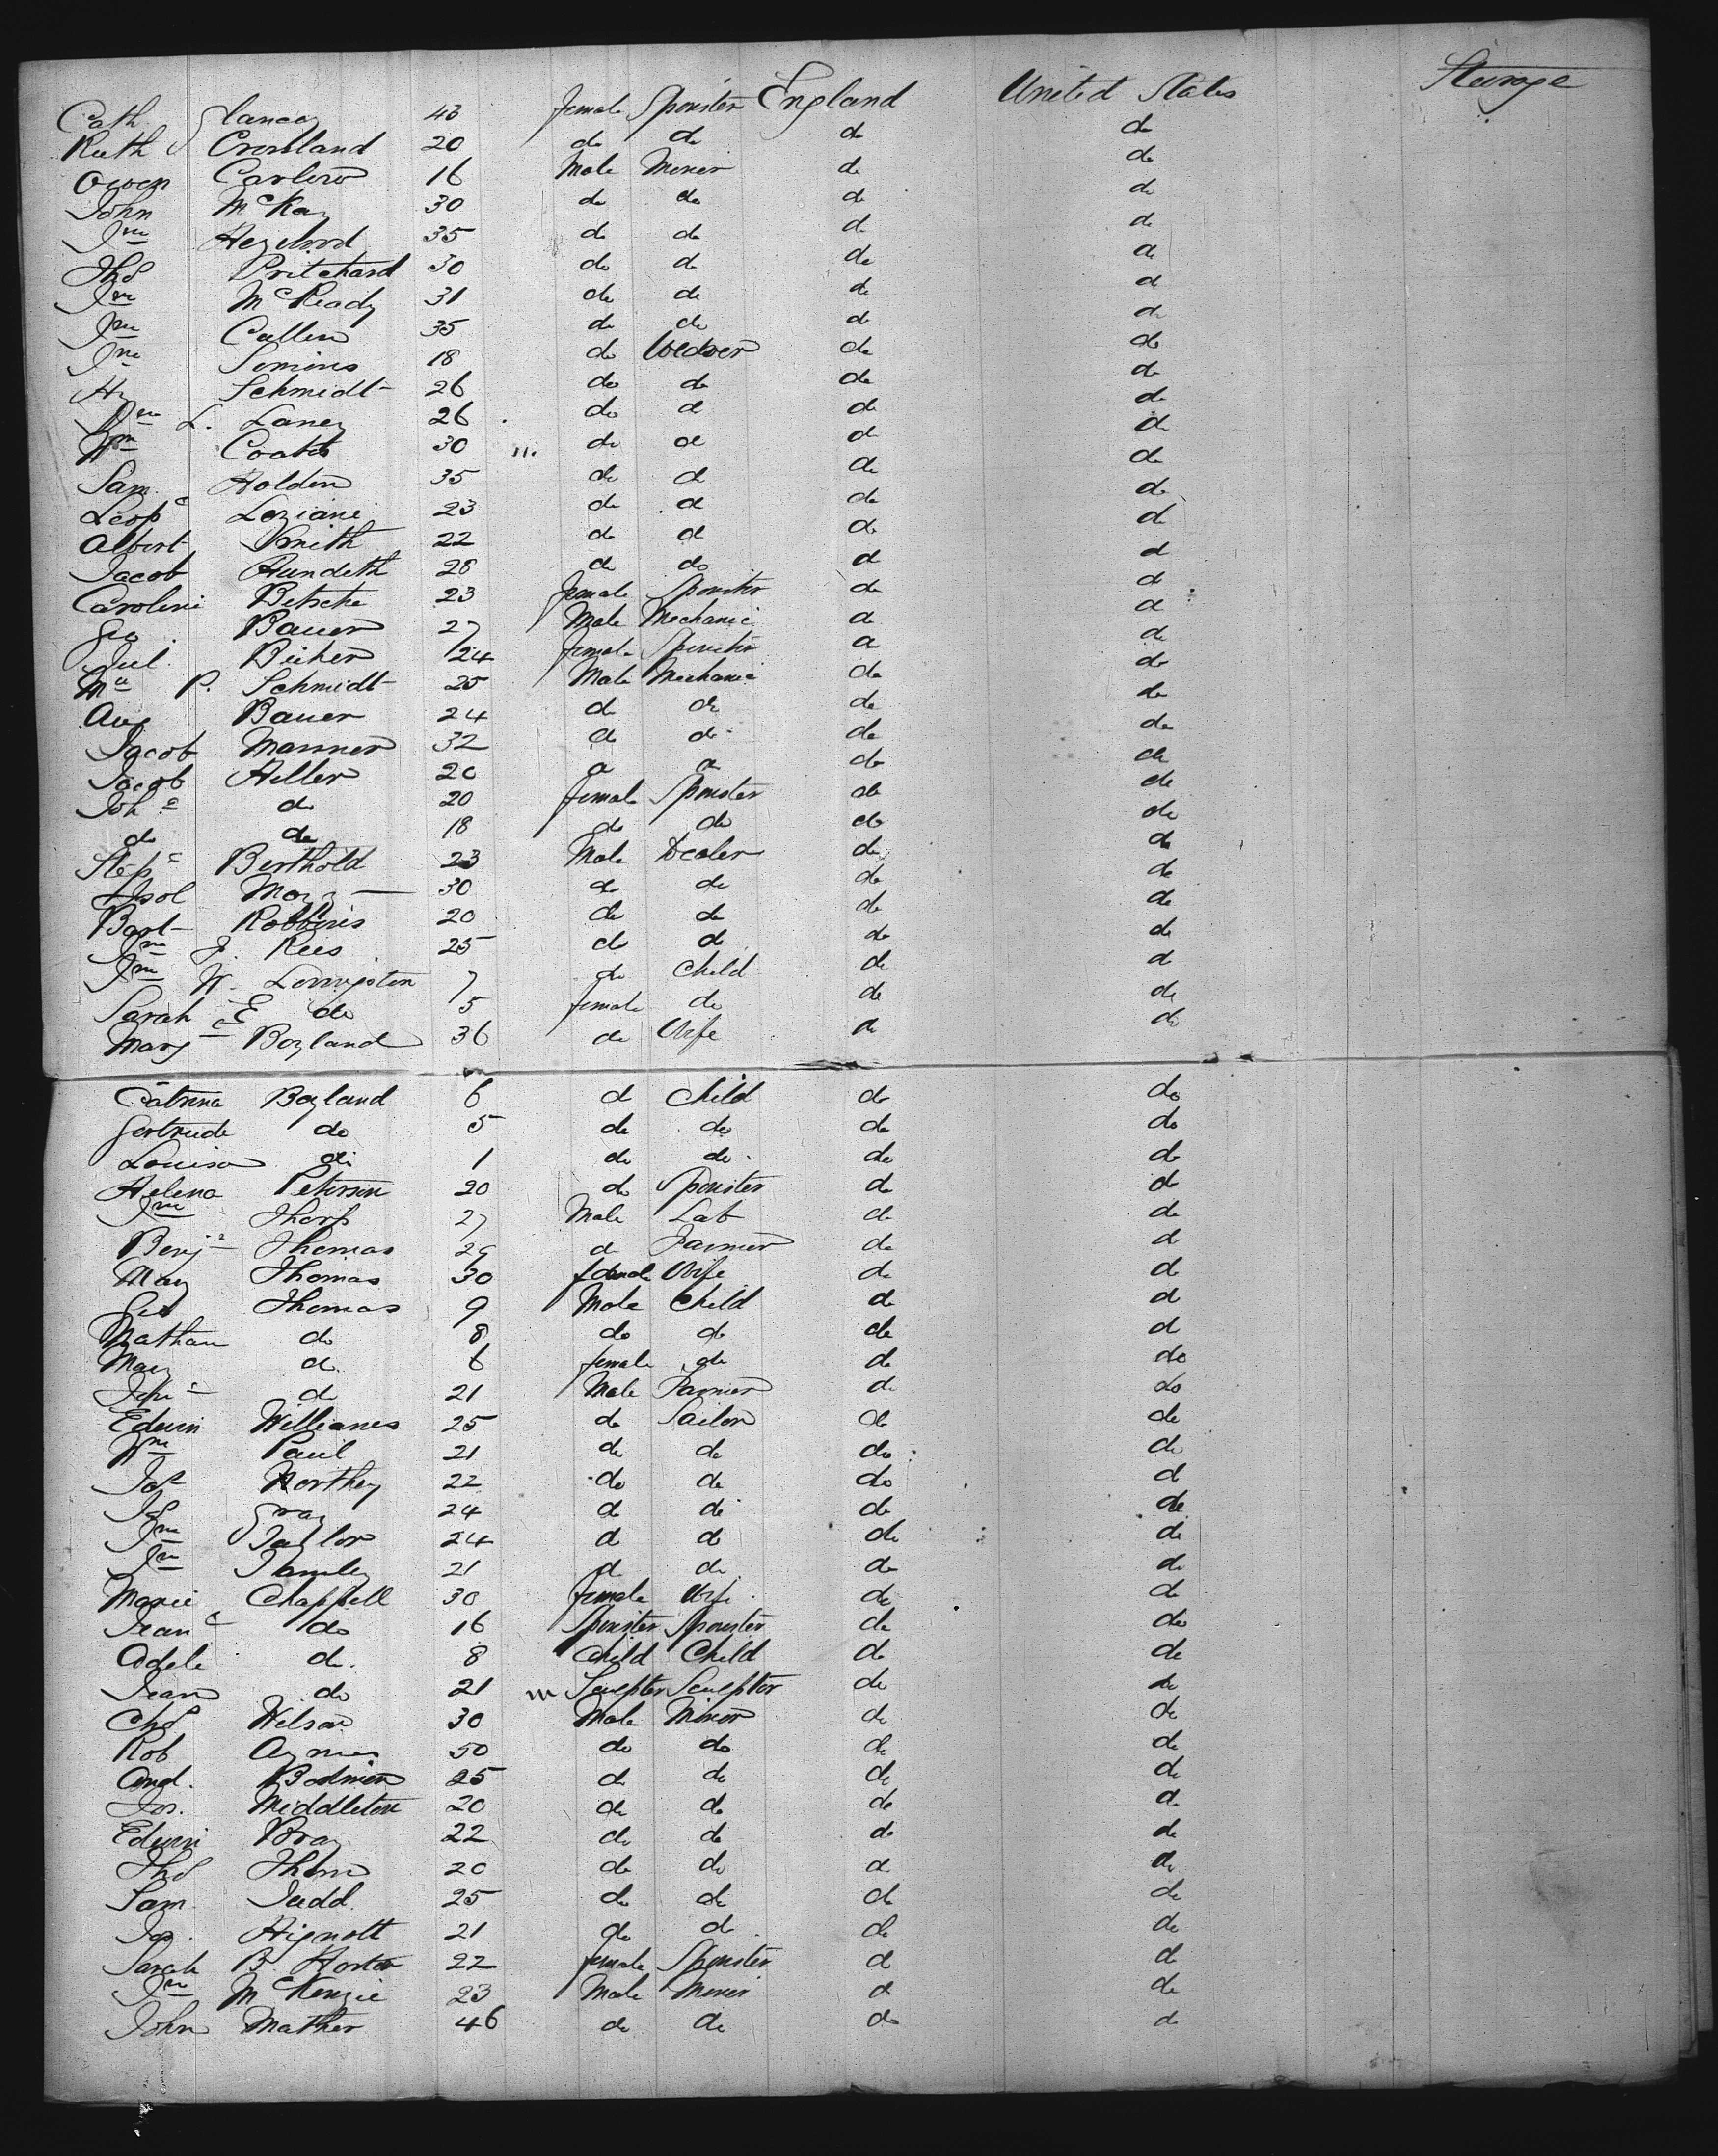 Cath. Glancey 43 female Spinster England United States Steerage
Ruth Crossland 20 do do do do
Owen Carlow 16 Male Miner do do
John McKay 30 do do do do
Jno 35 do do do do
Thos Pritchard 30 do do do do
Jno McReady 31 do do do do
Jno Cullen 35 do do do do
Jno Simins 18 do Weaver do do
Hy Schmidt 26 do do do do
Jno L. Laney 26 do do do do
Wm Coats 30 do do do do
Sam. Holden 35 do do do do
Leopd Loziane 23 do do do do
Albert Smith 22 do do do do
Jacob Hundeth 28 do do do do
Caroline Betsche 23 female Spinster do do
Geo. Bauer 27 Male Mechanic do do
Jul. Bicher 24 female Spinster do do
P. Schmidt 25 Male Mechanic do do
Aug Bauer 24 do do do do
Jacob Manner 32 do do do do
Jacob Heller 20 do do do do
Joha do 20 female Spinster do do
do do 18 do do do do
Stepn Berthold 23 Male Dealer do do
Isol 30 do do do do
Bart Robbins 20 do do do do
Jno J. Rees 25 do do do do
Jno W. Livingston 7 do Child do do
Sarah E do 5 female do do do
Mary Boyland 36 do Wife do do
Catrina Boyland 6 do Child do do
Gertrude do 5 do do do do
Louisa do 1 do do do do
Helena Peterson 20 do Spinster do do
Jno Thorp 27 Male Lab do do
Benjn Thomas 29 do Farmer do do
Mary Thomas 30 female Wife do do
Geo Thomas 9 Male Child do do
Nathan do 8 do do do do
Mary do 6 female do do do
do 21 Male Farmer do do
Edwin Williams 25 do Sailor do do
Wm Paul 21 do do do do
Jos Northey 22 do do do do
Js Gray 24 do do do do
Jno Taylor 24 do do do do
Jno Stanley 21 do do do do
Marie Chappell 30 female Wife do do
Jeane do 16 Spinster Spinster do do
Adele do 8 Child Child do do
Jean do 21 m Sculptor Sculptor do do
Chs Wilson 30 Male Miner do do
Rob Aymes 50 do do do do
And. Bodmin 25 do do do do
Jos. Middleton 20 do do do do
Edwin Bray 22 do do do do
Thos Thorn 20 do do do do
Sam. Judd. 25 do do do do
Jas. Hignott 21 do do do do
Sarah B. Horton 22 female Spinster do do
Jno McKenzie 23 Male Miner do do
John Mather 46 do do do do